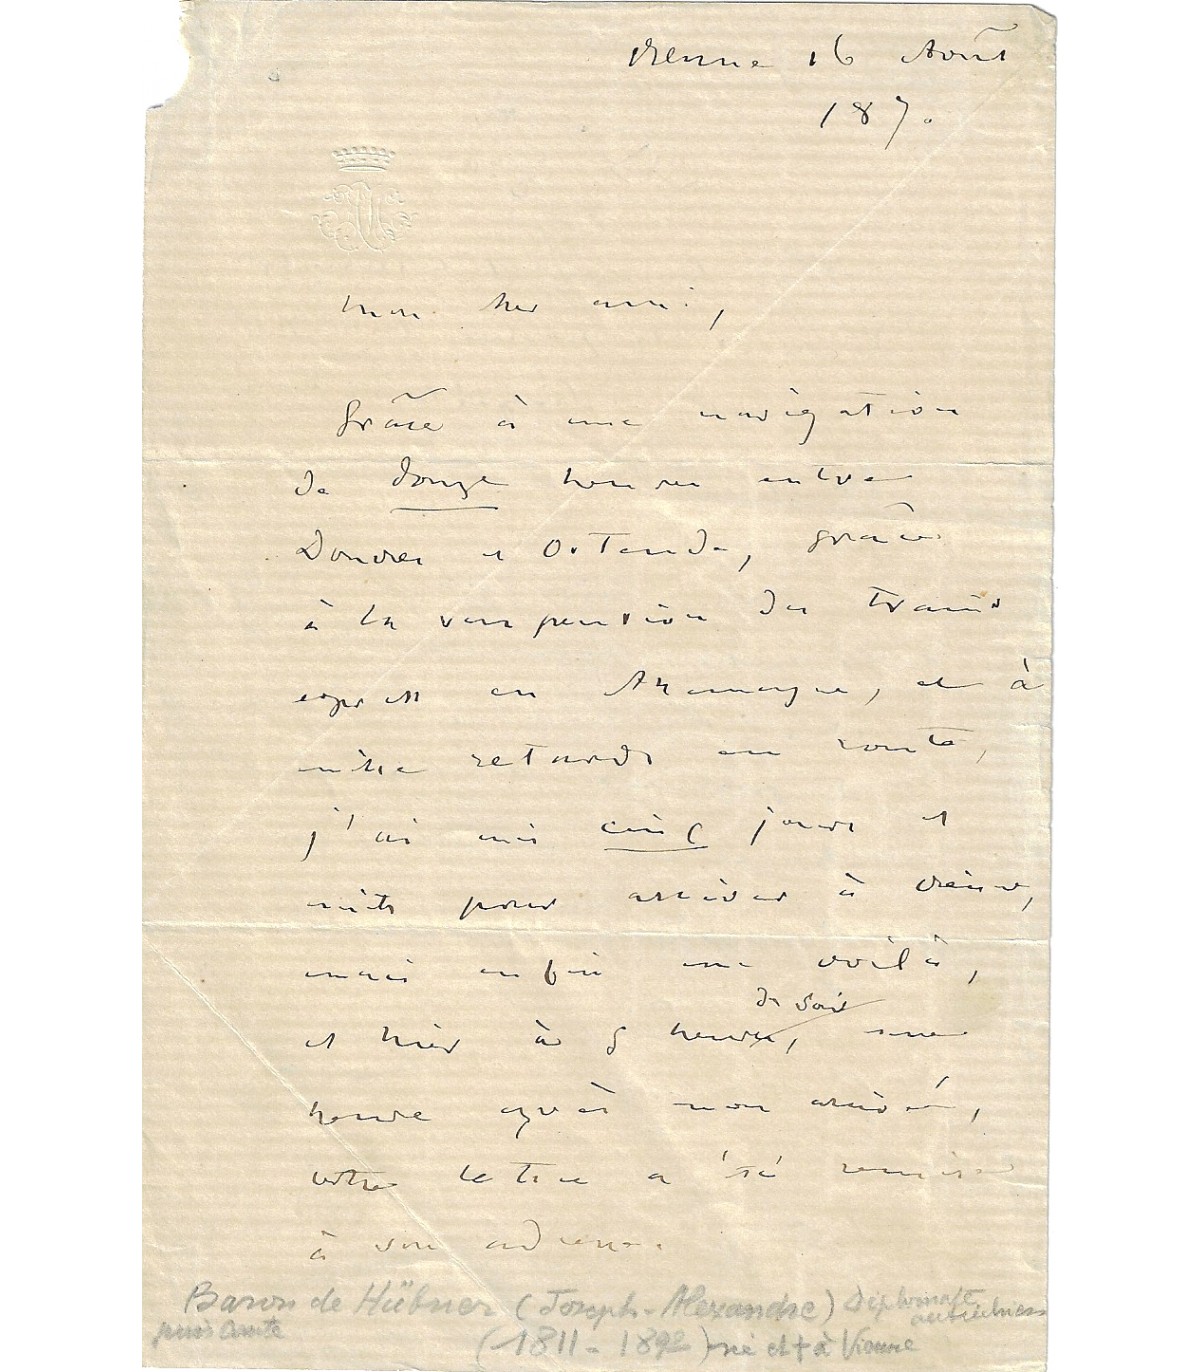 Vienne 16 Août
187.
Mon cher ami,
Grâce à une navigation
de douze heures entre
Douvres et Ostende, grâce
à la suspension des trains
express en Allemagne, et à
mille retards en route,
j'ai mis cinq jours et
nuits pour arriver à Vienne,
mais enfin me voilà,
et hier à 5 heures, du soir une
heure après mon arrivée,
votre lettre a été remise
à son adresse.
Baron de Hübner (Joseph-Alexandre) Diplomate autrichien
puis comte
(1811-1892) né et † à Vienne